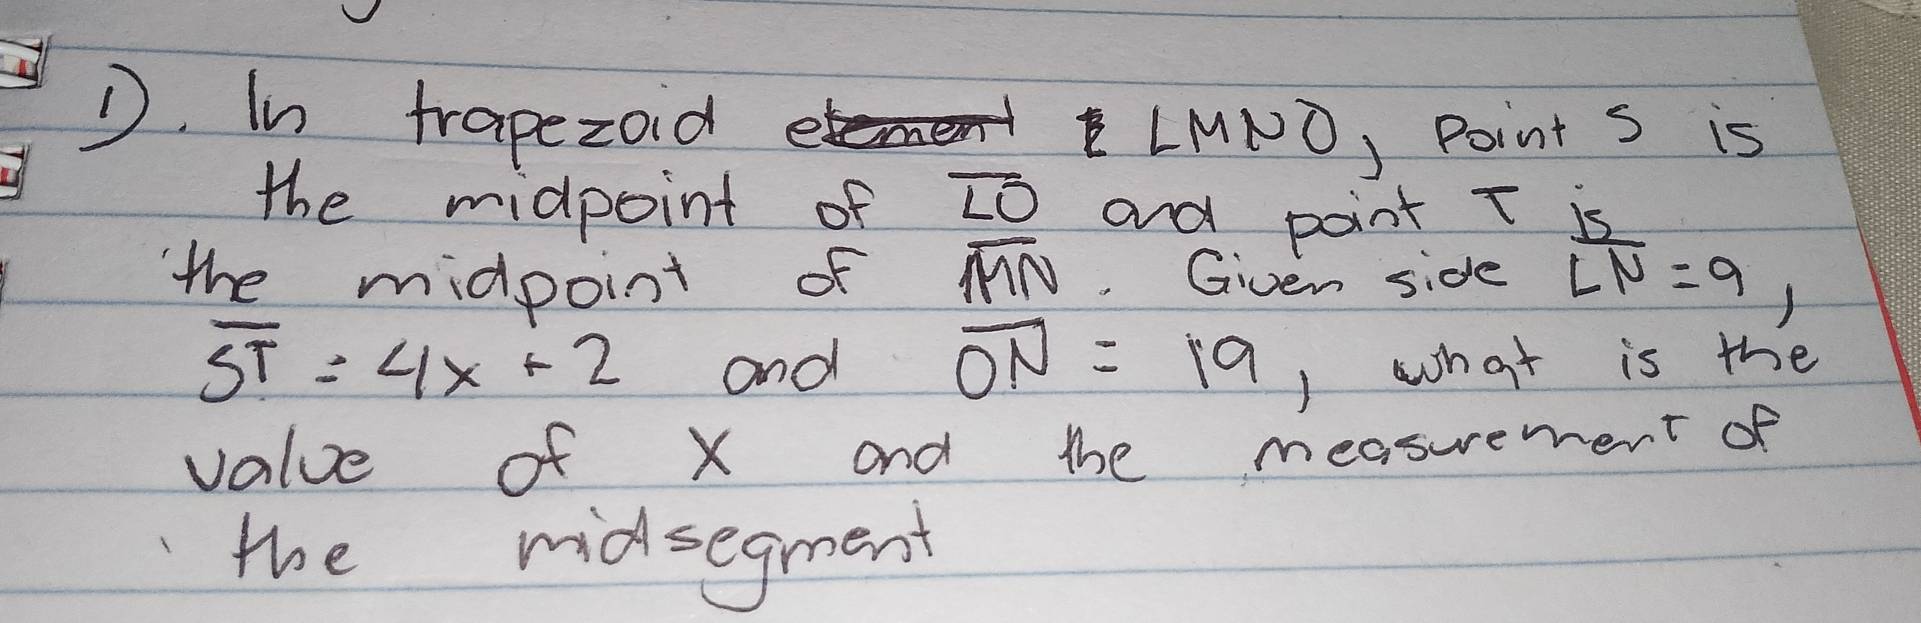 1). In trapezoid LMNO, Point S is
the midpoint of LO and point T is
the midpoint of MN. Given side LN = 9,
ST = 4x + 2 and ON = 19, what is the
value of X and the measurement of
the midsegment